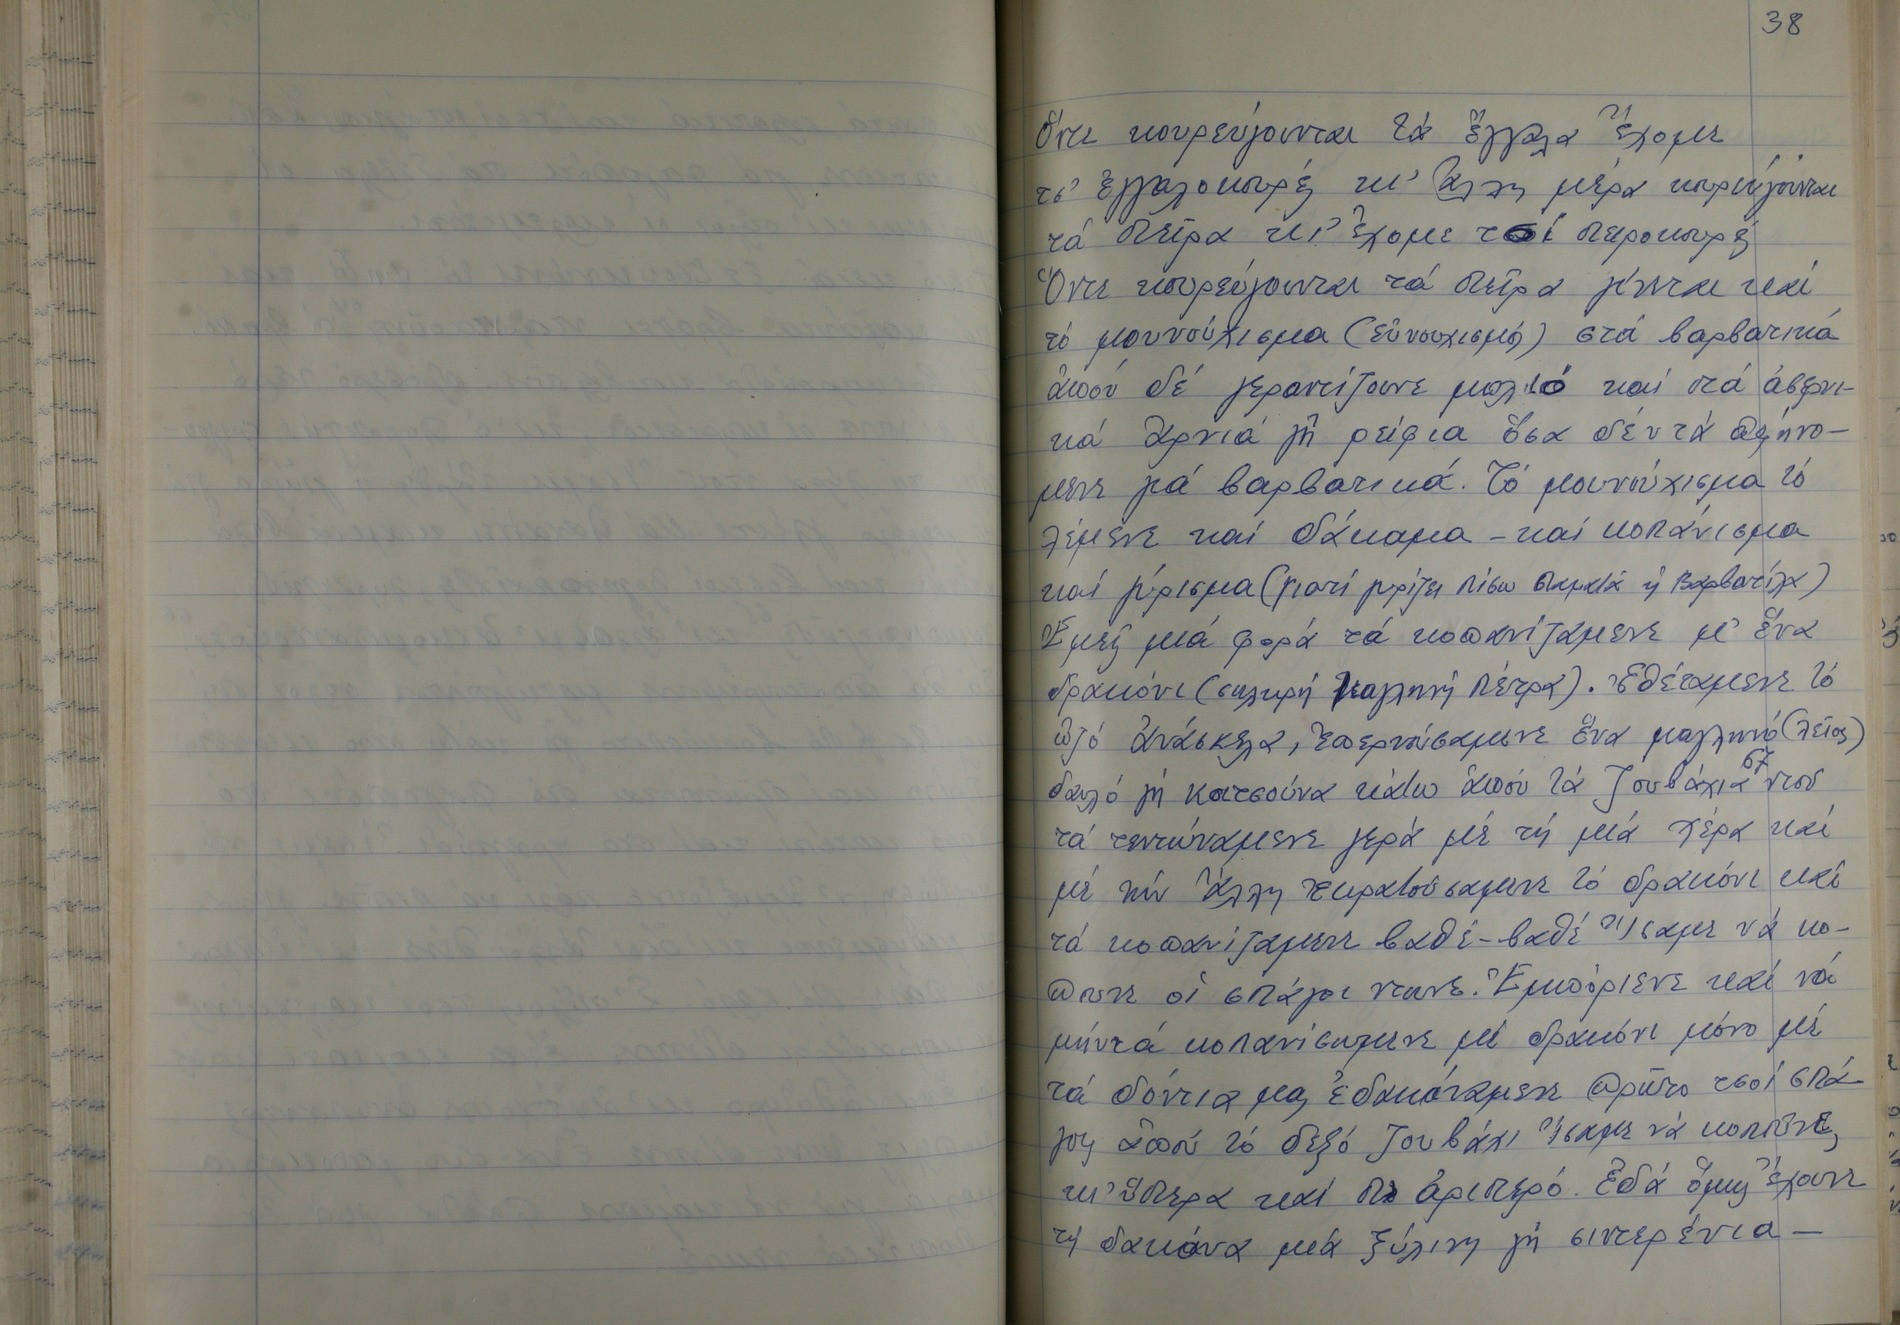 38
Ὄντε κουρεύγουνται τά ἔγγαλα ἔχομε
τσ' ἐγγαλοκουρές κι' ἄλλη μέρα κουρεύγουνται
τά στεῖρα κι' ἔχομε τσί στειροκουρές
Ὄντε κουρεύγουνται τά στεῖρα γίνεται καί
τό μουνούχισμα (εὐνουχισμός) στά βαρβατικά
ἀπού δέ γεραντίζουνε μπλιό καί στά ἀσερνι-
κά ἀρνιά γή ρίφια ὅσα δέν τά ἀφήνο-
μενε γιά βαρβατικά. Τό μουνούχισμα τό
λέμενε καί δάκαμα - καί κοπάνισμα
καί γύρισμα (γιατί γυρίζει πίσω σταματᾶ ἡ βαρβατίλα)
Ἐμεῖς μιά φορά τά κοπανίζαμενε μ' ἕνα
δρακόνι (σκληρή μαλλινή πέτρα). Ἐθέταμενε τό
ὀζό ἀνάσκελα, ἐπερνούσαμενε ἕνα μαλλινό (λεῖος)
δαυλό γή κατσούνα κάτω ἀπού τά ζουβάχια 67 ντου
τά τεντώναμενε γερά μέ τή μιά χέρα καί
μέ τήν ἄλλη ἐκρατούσαμενε τό δρακόνι καί
τά κοπανίζαμενε βαθέ-βαθέ ἴσαμε νά κο-
πουνε οἱ σπάγοι ντωνε. Ἐμπόριενε καί νά
μήν τά κοπανίσωμενε μέ δρακόνι μόνο μέ
τά δόντια μας ἐδακάναμενε πρῶτο τσοί σπά-
γους ἀπού τό δεξό ζουβάχι ἴσαμε νά κοποῦνε
κι' ὕστερα καί στό ἀριστερό. Ἐδά ὅμως ἔχουνε
τή δακάνα μιά ξύλινη γή σιντερένια -